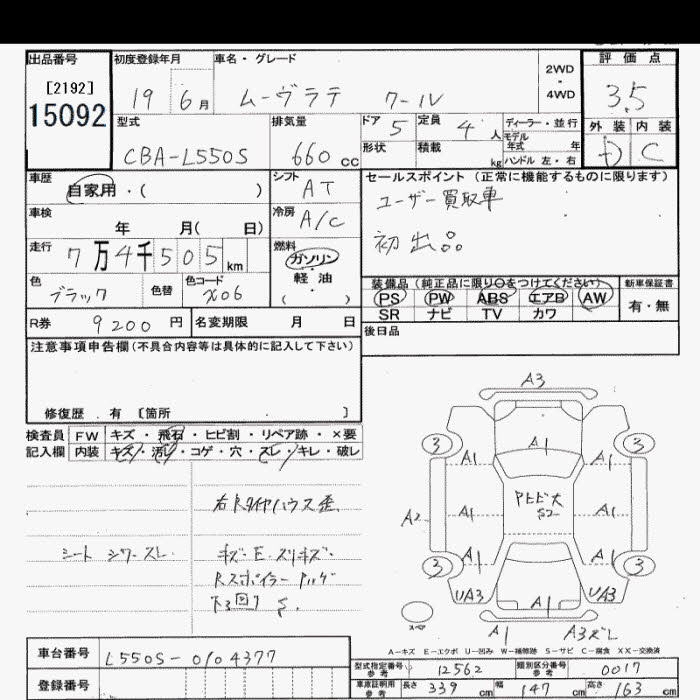 出品番号 初度登録年月 車名・グレード 評価点
[2192]
15092
19 6月 ムーヴラテ クール 2WD・4WD 3.5
型式 排気量 ドア 5 定員 4人 ディーラー・並行 外装 内装
モデル年式 年
CBA-L550S 660cc 形状 積載 kg ハンドル 左・右 D C
車歴 シフト セールスポイント(正常に機能するものに限ります)
自家用・( ) AT ユーザー買取車
車検 年 月( 日) 冷房 A/C 初出品
走行 7万4千505km 燃料 ガソリン・軽油( )
色 ブラック 色替 色コード X06
装備品(純正品に限り○をつけてください) 新車保証書
PS PW ABS エアB AW 有・無
SR ナビ TV カワ
R券 9200円 名変期限 月 日 後日品
注意事項申告欄(不具合内容等は具体的に記入して下さい)
修復歴.有 [箇所 ]
検査員 FW キズ・飛石・ヒビ割・リペア跡・×要
記入欄 内装 キズ・汚レ・コゲ・穴・スレ・キレ・破レ
シート シワ・スレ.
キズ・E・スリキズ・
A3
3 3
A1 A1 A1
A2 A1 A1
S2
A1 A1
3 3
UA3 A1 UA3
A1 A3ズレ
A-キズ E-エクボ U-凹み W-補修跡 S-サビ C-腐食 XX-交換済
車台番号 L550S-0104377
登録番号
型式指定番号 参考 12562 類別区分番号 参考 0017
車庫証明用 参考 長さ 339cm 幅 147cm 高さ 163cm